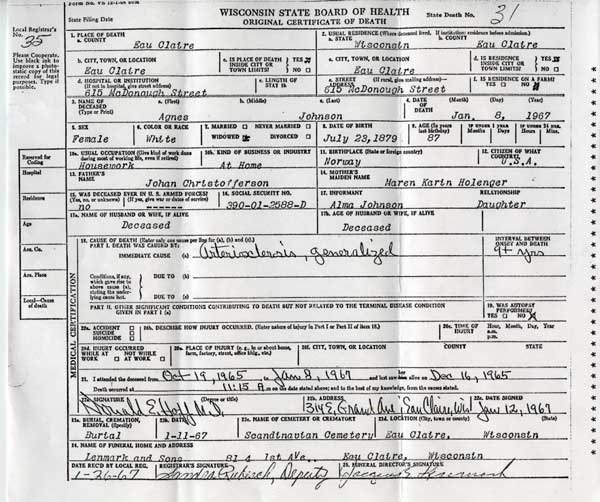 Form No. VS
WISCONSIN STATE BOARD OF HEALTH
ORIGINAL CERTIFICATE OF DEATH
State Filing Date
State Death No. 31
Local Registrar's No. 35
Please Cooperate. Use black ink to improve a photostatic copy of this record for legal purposes. Type if possible.
1. PLACE OF DEATH
a. COUNTY Eau Claire
2. USUAL RESIDENCE (Where deceased lived. If institution: residence before admission.)
a. STATE Wisconsin
b. COUNTY Eau Claire
b. CITY, TOWN, OR LOCATION Eau Claire
c. IS PLACE OF DEATH INSIDE CITY OR TOWN LIMITS? YES NO
c. CITY, TOWN, OR LOCATION Eau Claire
d. IS RESIDENCE INSIDE CITY OR TOWN LIMITS? YES NO
d. HOSPITAL OR INSTITUTION (If not in hospital, give street address) 615 McDonough Street
e. LENGTH OF STAY 1b
e. STREET ADDRESS (If rural, give mailing address) 615 McDonough Street
f. IS RESIDENCE ON A FARM? YES NO
3. NAME OF DECEASED (Type or Print)
a. (First) Agnes
b. (Middle)
c. (Last) Johnson
4. DATE OF DEATH (Month) (Day) (Year) Jan. 8, 1967
5. SEX Female
6. COLOR OR RACE White
7. MARRIED NEVER MARRIED WIDOWED DIVORCED
8. DATE OF BIRTH July 23, 1879
9. AGE (In years last birthday) 87
Months Days Hours Min.
10a. USUAL OCCUPATION (Give kind of work done during most of working life, even if retired) Housework
10b. KIND OF BUSINESS OR INDUSTRY At Home
11. BIRTHPLACE (State or foreign country) Norway
12. CITIZEN OF WHAT COUNTRY? U.S.A.
Reserved for Coding
Hospital
Residence
Age
Acc. Co.
Acc. Place
Local—Cause of death
13. FATHER'S NAME Johan Christofferson
14. MOTHER'S MAIDEN NAME Maren Karin Holenger
15. WAS DECEASED EVER IN U.S. ARMED FORCES? (Yes, no, or unknown) (If yes, give war or dates of service) no
16. SOCIAL SECURITY NO. 390-01-2588-D
17. INFORMANT Alma Johnson
RELATIONSHIP Daughter
17a. NAME OF HUSBAND OR WIFE, IF ALIVE Deceased
17b. AGE OF HUSBAND OR WIFE, IF ALIVE Deceased
MEDICAL CERTIFICATION
18. CAUSE OF DEATH (Enter only one cause per line for (a), (b) and (c).)
PART I. DEATH WAS CAUSED BY:
IMMEDIATE CAUSE (a) generalized
INTERVAL BETWEEN ONSET AND DEATH 9+ yrs
Conditions, if any, which gave rise to above cause (a), stating the underlying cause last.
DUE TO (b)
DUE TO (c)
PART II. OTHER SIGNIFICANT CONDITIONS CONTRIBUTING TO DEATH BUT NOT RELATED TO THE TERMINAL DISEASE CONDITION GIVEN IN PART I (a)
19. WAS AUTOPSY PERFORMED? YES NO
20a. ACCIDENT SUICIDE HOMICIDE
20b. DESCRIBE HOW INJURY OCCURRED. (Enter nature of injury in Part I or Part II of item 18.)
20c. TIME OF INJURY Hour, a.m. p.m. Month, Day, Year
20d. INJURY OCCURRED WHILE AT WORK NOT WHILE AT WORK
20e. PLACE OF INJURY (e.g., in or about home, farm, factory, street, office bldg., etc.)
20f. CITY, TOWN, OR LOCATION COUNTY STATE
21. I attended the deceased from Oct 19, 1965 to Jan 8, 1967 and last saw alive on Dec 16, 1965
Death occurred at 11:15 A. m on the date stated above; and to the best of my knowledge, from the causes stated.
22a. SIGNATURE (Degree or title) Donald E. Hoff M.D.
22b. ADDRESS 314 E. Grand Ave; Eau Claire, Wis
22c. DATE SIGNED Jan 12, 1967
23a. BURIAL, CREMATION, REMOVAL (Specify) Burial
23b. DATE 1-11-67
23c. NAME OF CEMETERY OR CREMATORY Scandinavian Cemetery
23d. LOCATION (City, town or county) (State) Eau Claire, Wisconsin
24. NAME OF FUNERAL HOME AND ADDRESS
Lenmark and Sons 814 1st Ave., Eau Claire, Wisconsin
DATE REC'D BY LOCAL REG. 1-26-67
REGISTRAR'S SIGNATURE Deputy
25. FUNERAL DIRECTOR'S SIGNATURE